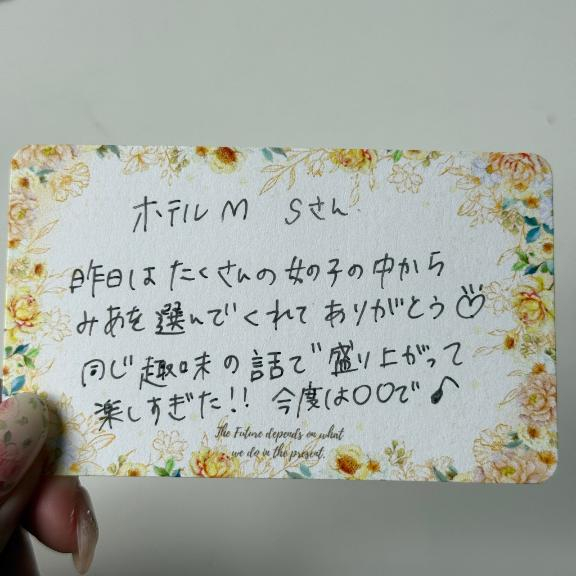 ホテルM Sさん
昨日は たくさんの 女の子の中から
みあを 選んでくれて ありがとう♡
同じ趣味の話で盛り上がって
楽しすぎた!! 今度は〇〇で♪
The Future depends on what
we do in the present.